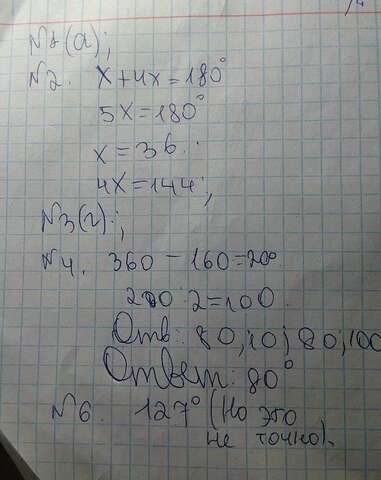 №1(а);
№2. x+4x=180°
5x=180°
x=36.
4x=144;
№3(г);
№4. 360-160=200
200:2=100.
Отв: 80;10;80;100
Ответ: 80°
№6. 127° (Но это
не точно).